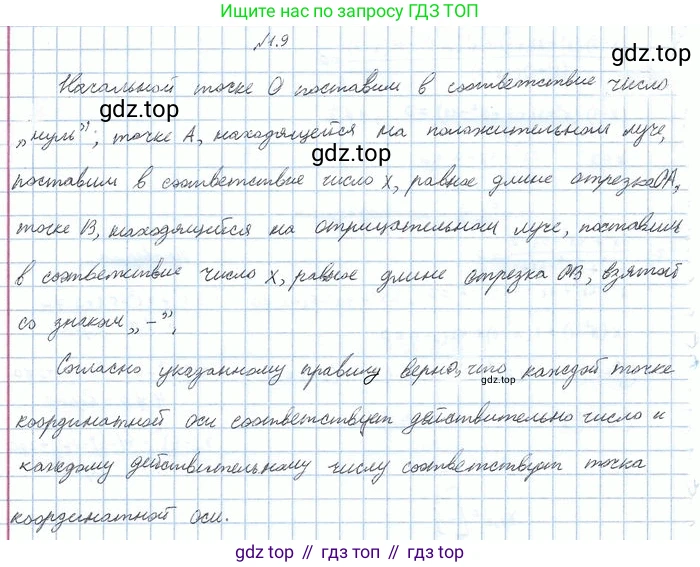 Ищите нас по запросу ГДЗ ТОП
№1.9
gdz.top
Начальной точке О поставим в соответствие число
gdz.top
„нуль”; точке А, находящейся на положительном луче,
gdz.top
поставим в соответствие число х, равное длине отрезка ОА,
точке В, находящейся на отрицательном луче, поставим
в соответствие число х, равное длине отрезка ОВ, взятой
со знаком „-”,
Согласно указанному правилу верно, что каждой точке
gdz.top
координатной оси соответствует действительно число и
каждому действительному числу соответствует точка
координатной оси.
gdz top // гдз топ // gdz.top